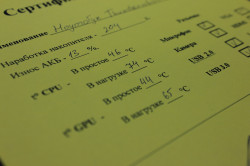 Сертифи
именование Ноутбук
Наработка накопителя - 204
Износ АКБ - 13 %
t° CPU - В простое 46 °С
В нагрузке 74 °С
t° GPU - В простое 44 °С
В нагрузке 65 °С
Разъемы
Микрофон
Камера
USB 2.0
USB 3.0